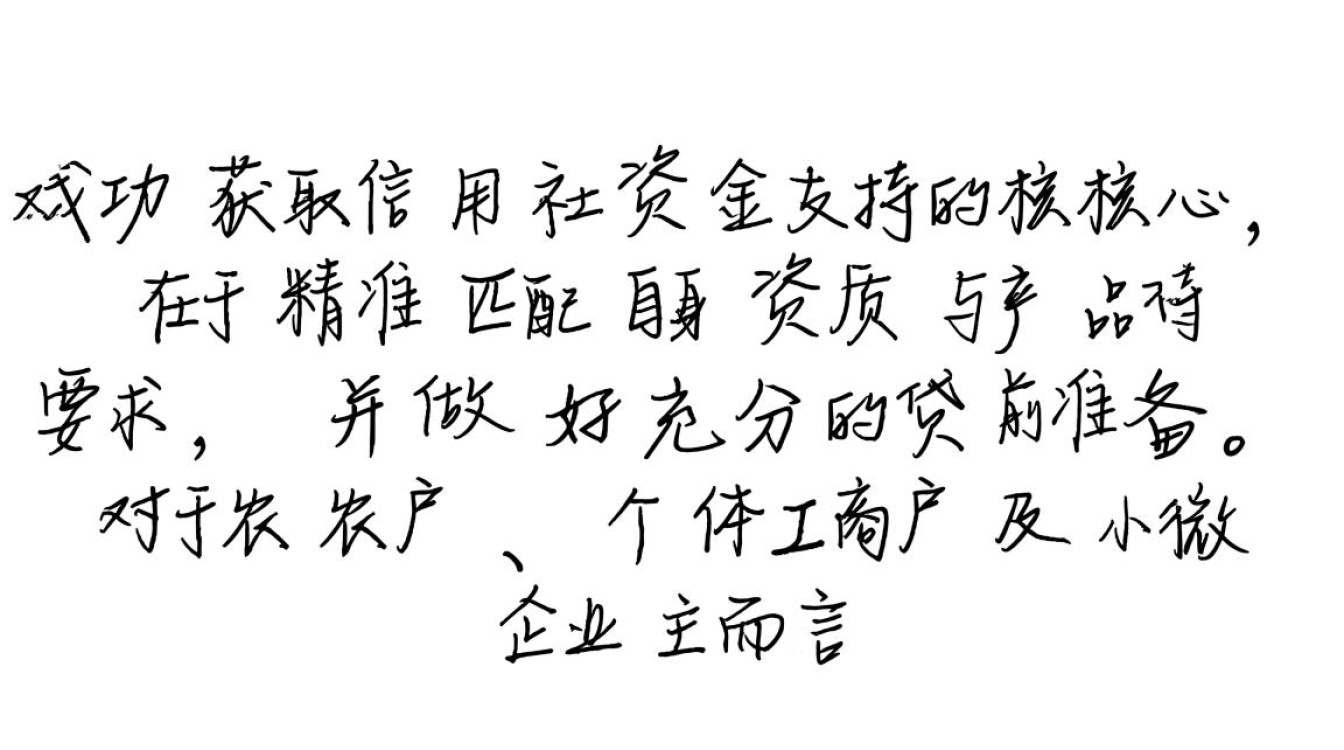 成功获取信用社资金支持的核核心,
在于精准匹配自身资质与产品待
要求,并做好充分的贷前准备。
对于农农户、个体工商户及小微
企业主而言